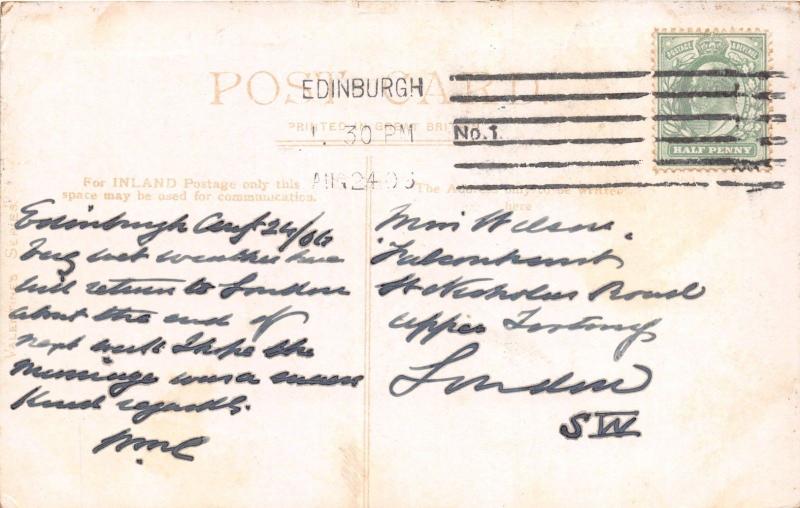 POST CARD
EDINBURGH
PRINTED IN GREAT BRITAIN
1. 30 PM
No.1.
AUG 24 06
POSTAGE & REVENUE
HALF PENNY
For INLAND Postage only this
space may be used for communication.
The Address only to be written
here
VALENTINE'S SERIES
Edinburgh Augt 24/06
Very wet weather here
will return to London
about the end of
next week I hope the
Marriage was a success
Kind regards.
Miss Wilson.
St Nicholas Road
Upper Tooting
London
SW